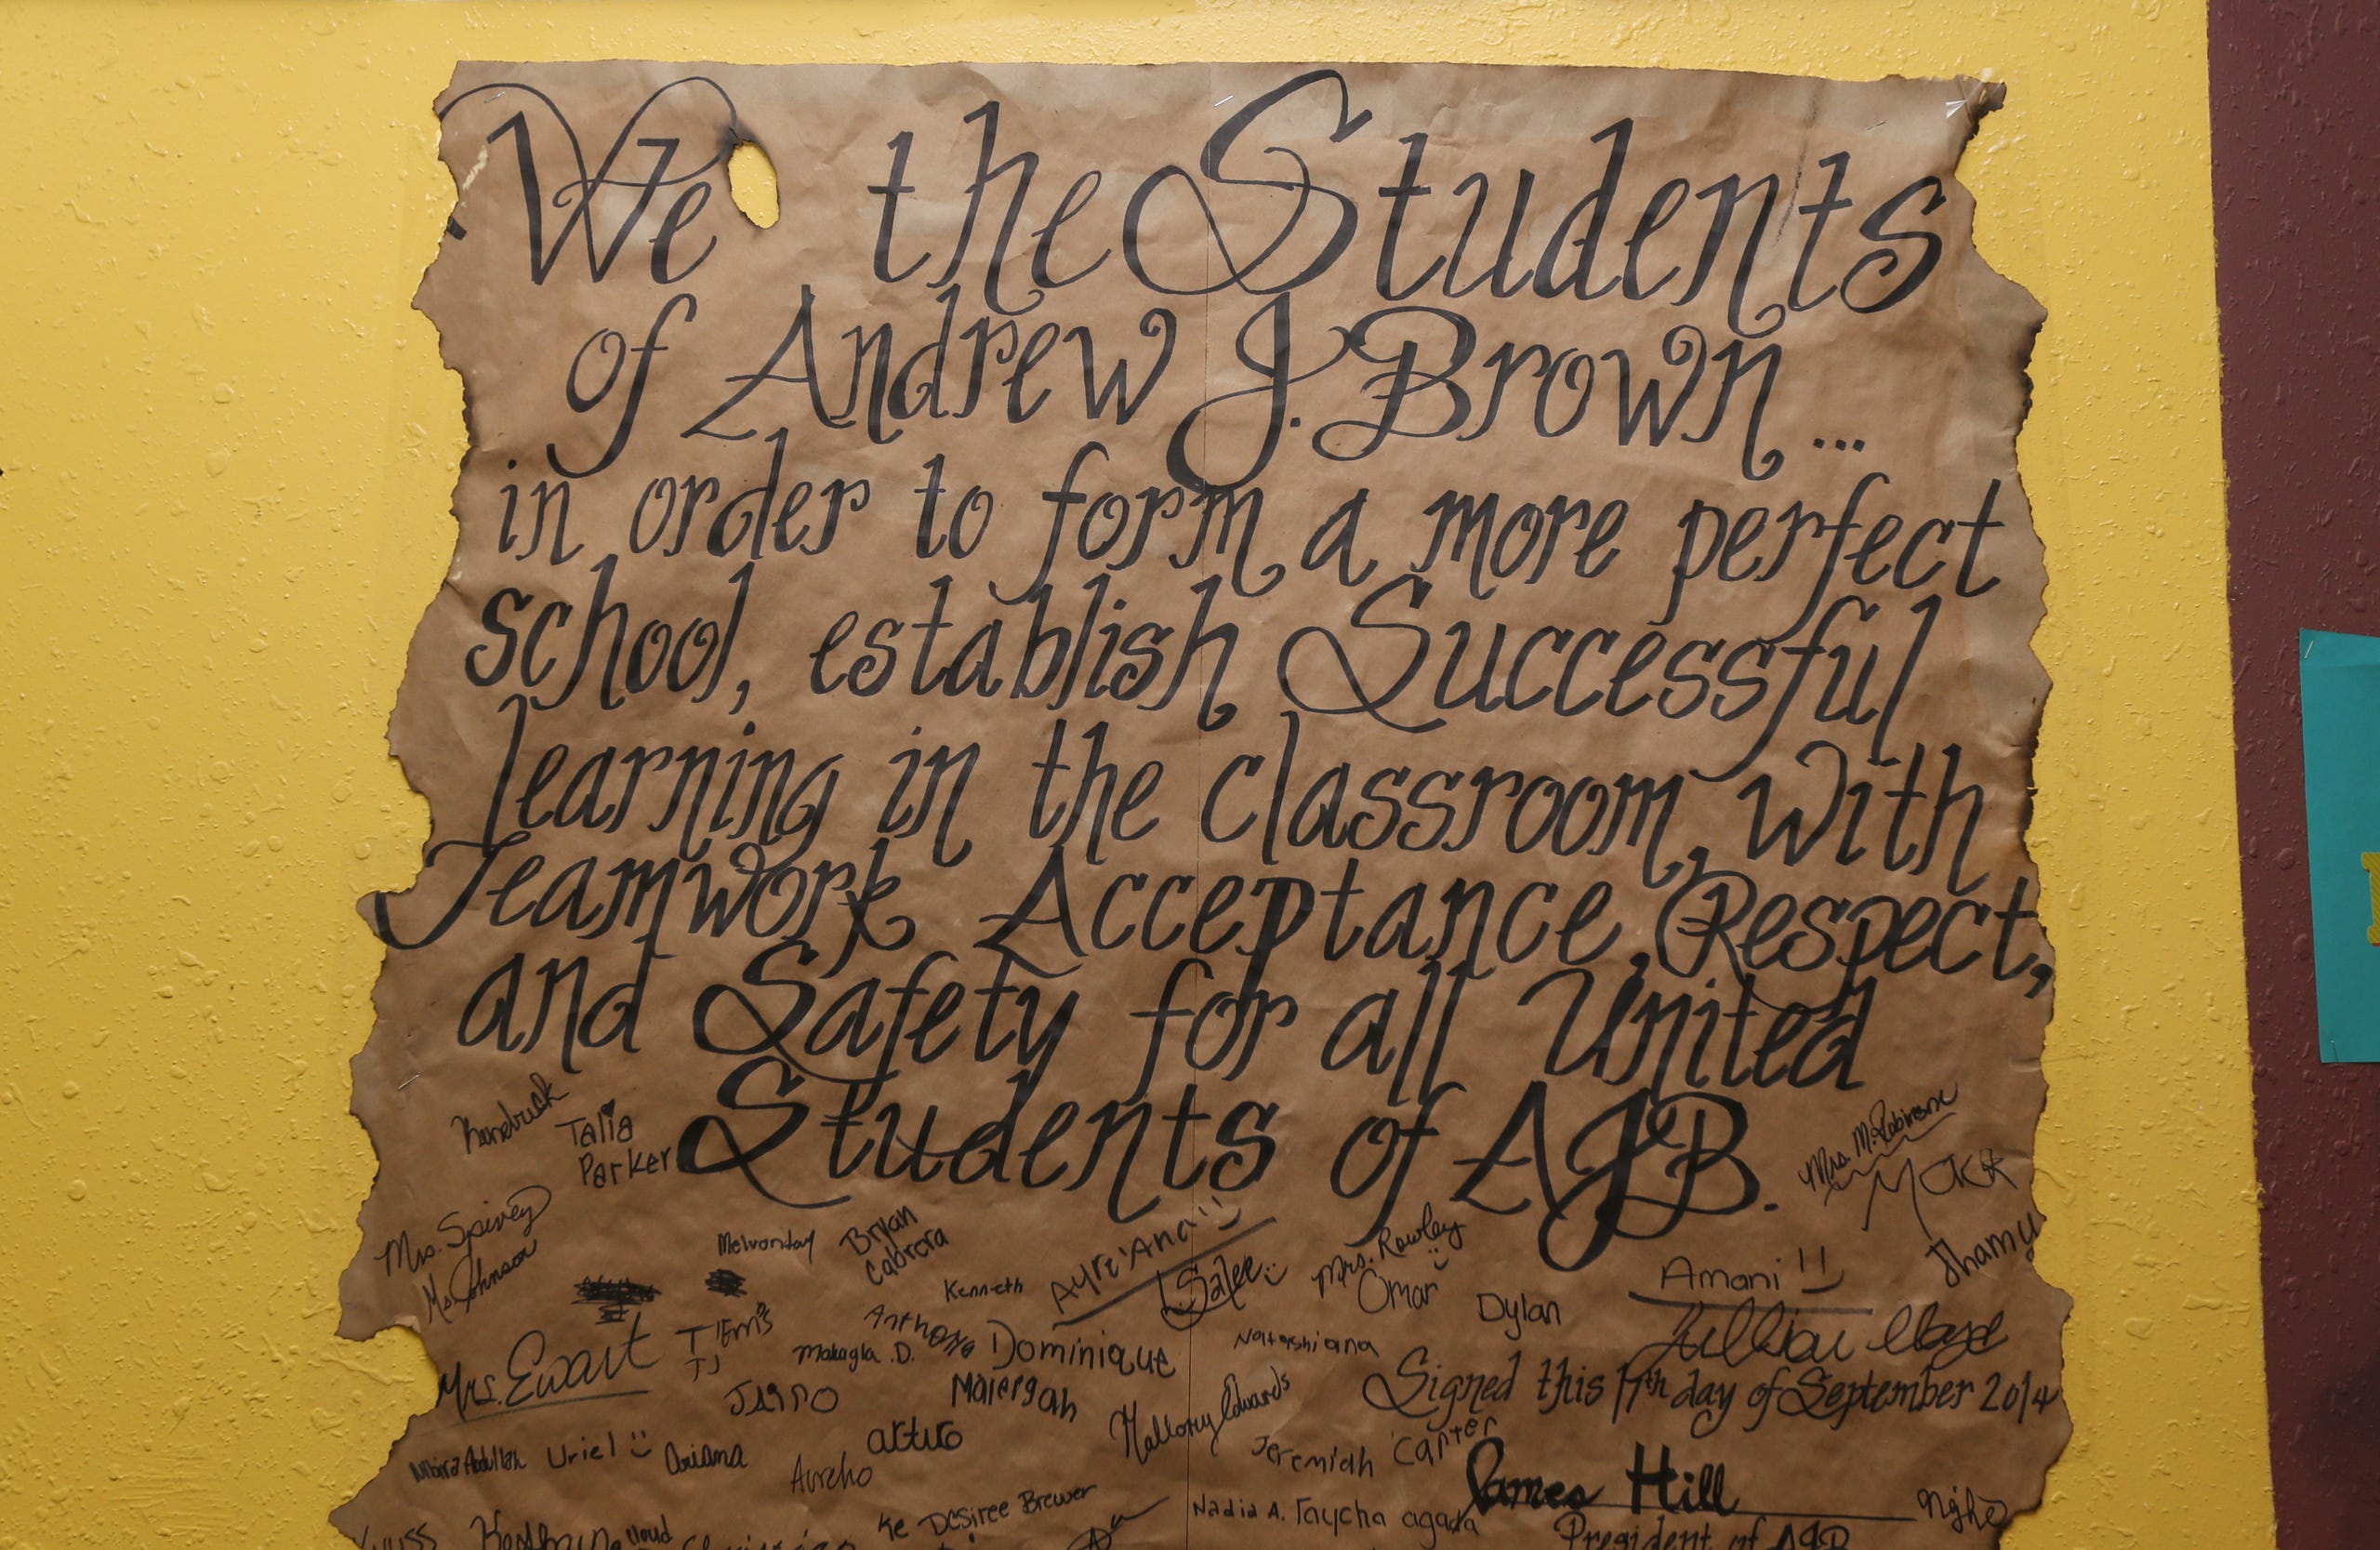 We the Students
of Andrew J. Brown...
in order to form a more perfect
school, establish Successful
learning in the classroom, with
Teamwork Acceptance, Respect,
and Safety for all United
Students of AJB.
Kendrick
Talia
Parker
Mrs. M. Robinson
Mrs. Spivey
Ms. Johnson
Bryan
Cabrera
Kenneth
Ayre'Ana
Salee
Mrs. Rowley
Omar
Dylan
Amani !!
Jhamy
Mrs. Ewart
TJ
Makayla .D.
Anthony
Dominique
Natashiana
Signed this 17th day of September 2014
Jairo
Mallory Edwards
Uriel
Ariana
Arturo
Aurelio
Jeremiah Carter
James Hill
Desiree Brewer
Nadia A.
President of AJB